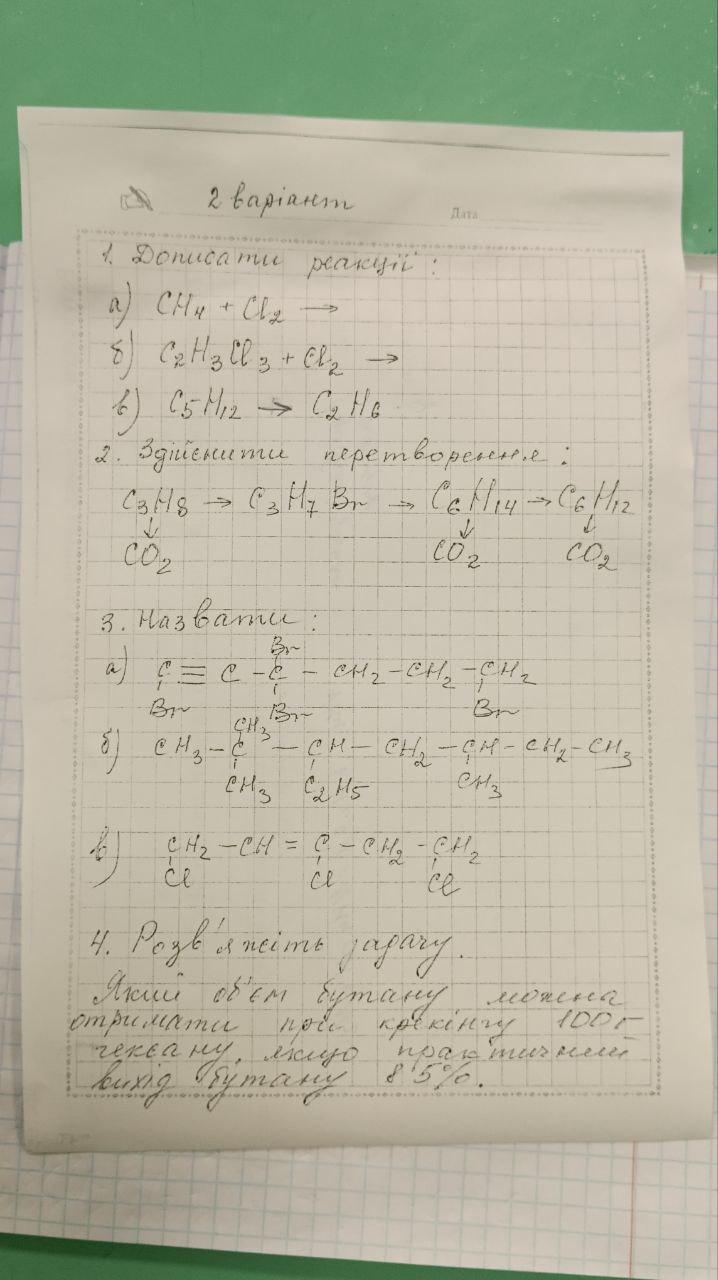 2 варіант
Дата
1. Дописати реакції:
а) CH4 + Cl2 →
б) C2H3Cl3 + Cl2 →
в) C5H12 → C2H6
2. Здійснити перетворення:
C3H8 → C3H7Br → C6H14 → C6H12
↓ ↓ ↓
CO2 CO2 CO2
3. Назвати:
Br
а) C ≡ C – C – CH2 – CH2 – CH2
Br Br Br
CH3
б) CH3 – C – CH – CH2 – CH – CH2 – CH3
CH3 C2H5 CH3
в) CH2 – CH = C – CH2 – CH2
Cl Cl Cl
4. Розв'яжіть задачу.
Який об'єм бутану можна
отримати при крекінгу 100г
гексану, якщо практичний
вихід бутану 85%.